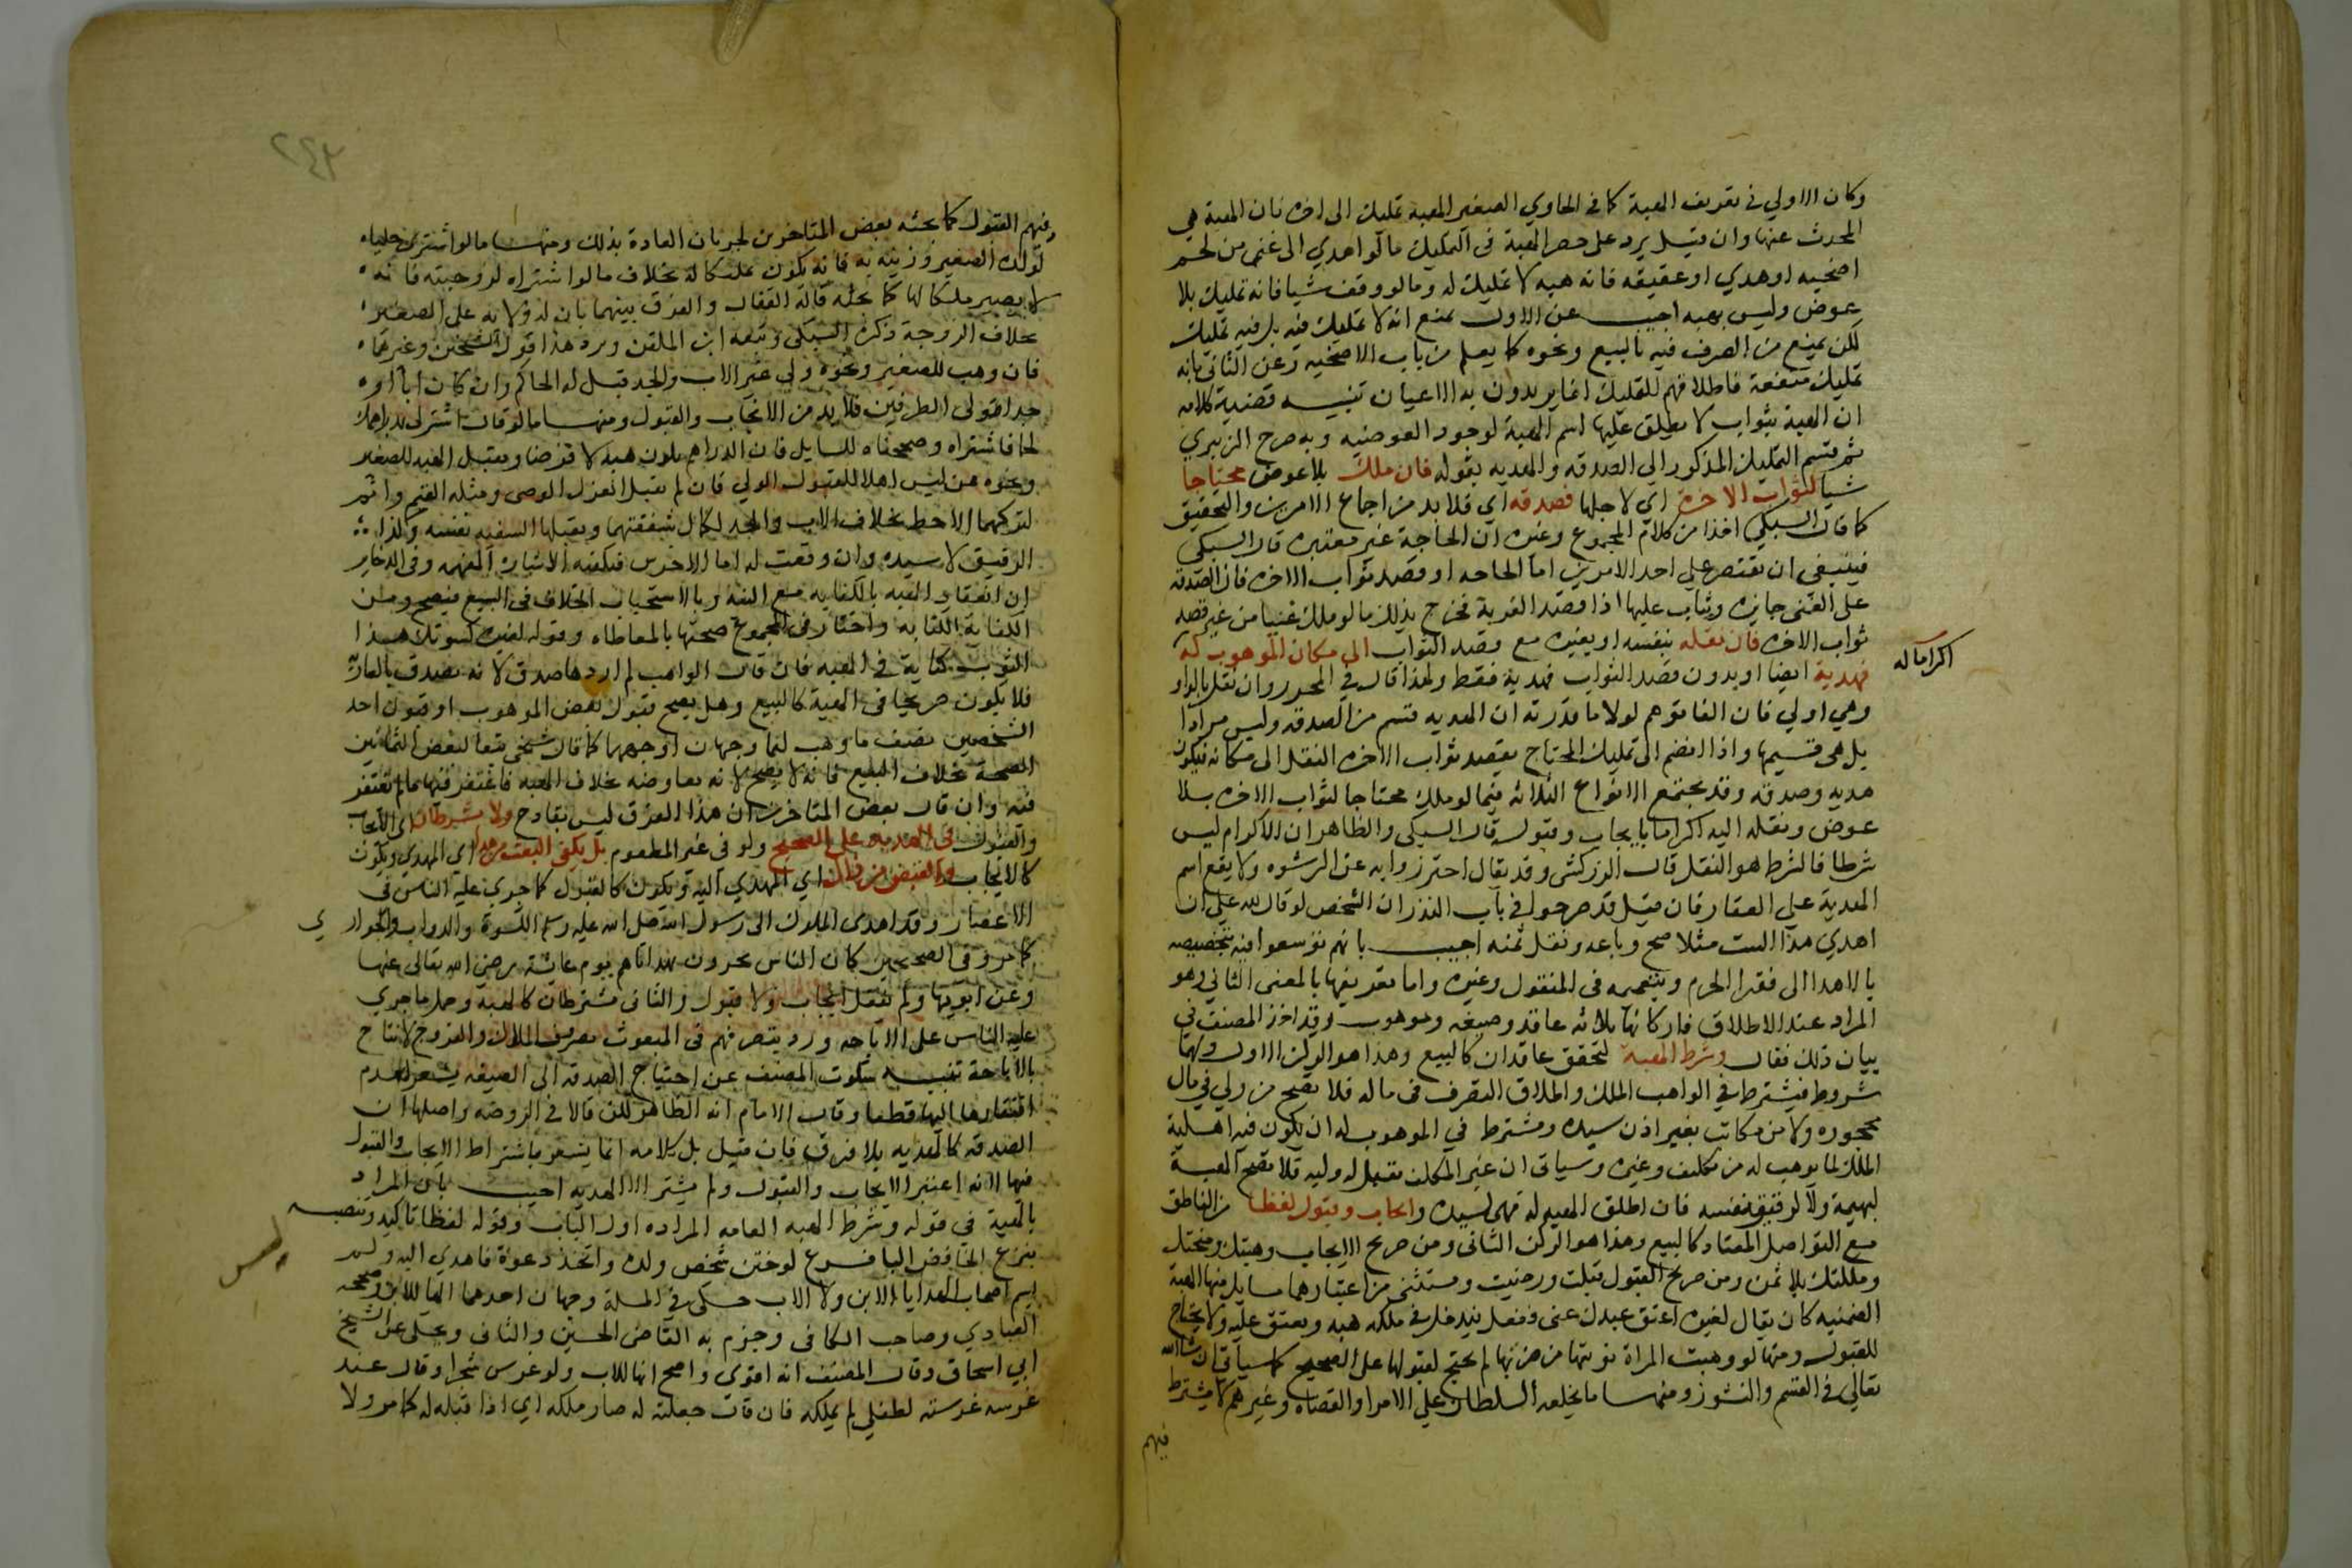 وكان الاولي في تعريف الهبة كما في الحاوي الصغير الهبة تمليك الى اخره فان الهبة هي
المحدث عنها وان قيل يرد على حصر الهبة في التمليك ما لو اهدي الى غني من لحم
اضحيه او هدي او عقيقه فانه هبه لا تمليك له وما لو وقف شيا فانه تمليك بلا
عوض وليس بهبه اجيب عن الاول بمنع انه لا تمليك فيه بل فيه تمليك
لكن يمنع من التصرف فيه بالبيع ونحوه كما يعلم من باب الاضحيه وعن الثاني بانه
تمليك منفعة فاطلاقهم للتمليك انما يريدون به الاعيان تنبيه قضية كلامه
ان الهبة بثواب لا يطلق عليها اسم الهبة لوجود العوضيه وبه صرح الزبيري
ثم قسم التمليك المذكور الى الصدقه والهديه بقوله فان ملك بلا عوض محتاجا
شيا لثواب الاخرة اي لاجلها فصدقه اي فلا بد من اجماع الامرين والتحقيق
كما قال السبكي اخذا من كلام المجموع وغيره ان الحاجة غير معتبره قال السبكي
فينبغي ان يقتصر علي احد الامرين اما الحاجه او قصد ثواب الاخره فان الصدقه
على الغني جايزه ويثاب عليها اذا قصد القربة فخرج بذلك ما لو ملك غنيا من غير قصد
ثواب الاخره فان نقله بنفسه او بغيره مع قصد الثواب الى مكان الموهوب له
اكراما له
فهدية ايضا او بدون قصد الثواب فهدية فقط ولهذا قال في المحرر وان نقل بالواو
وهي اولي فان الفا توهم لولا ما قدرته ان الهديه قسم من الصدقه وليس مرادا
بل هي قسيمها واذا انضم الى تمليك المحتاج بقصد ثواب الاخره النقل الى مكانه فيكون
هديه وصدقه وقد يجتمع الانواع الثلاثه فيما لو ملك محتاجا لثواب الاخره بلا
عوض ونقله اليه اكراما بايجاب وقبول قال السبكي والظاهر ان الاكرام ليس
شرطا فالشرط هو النقل قال الزركشي وقد يقال احترزوا به عن الرشوه ولا يقع اسم
الهدية علي العقار فان قيل قد صرحوا في باب النذر ان الشخص لو قال لله علي ان
اهدي هذا البيت مثلا صح وباعه ونقل ثمنه اجيب بانهم توسعوا فيه بتخصيصه
بالاهدا الى فقرا الحرم وبتعميمه في المنقول وغيره واما تعريفها بالمعنى الثاني وهو
المراد عند الاطلاق فاركانها ثلاثه عاقد وصيغه وموهوب وقد اخذ المصنف في
بيان ذلك فقال وشرط الهبة لتحقق عاقدان كالبيع وهذا هو الركن الاول ولهما
شروط فيشترط في الواهب الملك واطلاق التصرف في ماله فلا تصح من ولي في مال
محجوره ولا من مكاتب بغير اذن سيده ويشترط في الموهوب له ان يكون فيه اهلية
الملك لما يوهب له من تكليف وغيره وسياتي ان غير المكلف يقبل له وليه فلا تصح الهبة
لبهيمة ولا لرقيق نفسه فان اطلق الهبه له فهي لسيده وايجاب وقبول لفظا من الناطق
مع التواصل المعتاد كالبيع وهذا هو الركن الثاني ومن صريح الايجاب وهبتك ومنحتك
وملكتك بلا ثمن ومن صريح القبول قبلت ورضيت ويستثنى من اعتبارهما مسايل منها الهبة
الضمنيه كان يقال لغيره اعتق عبدك عني ففعل فيدخل في ملكه هبه ويعتق عليه ولا يحتاج
للقبول ومنها لو وهبت المراة نوبتها من ضرتها لم يحتج لقبولها على الصحيح كما سياتي ان شا الله
تعالي في القسم والنشوز ومنها ما يخلعه السلطان علي الامرا والقضاه وغيرهم لا يشترط
فيهم
٢٤٣
فيهم القبول كما بحثه بعض المتاخرين لجريان العادة بذلك ومنها ما لو اشترى حليا
لولده الصغير وزينه به فانه يكون تمليكا له بخلاف ما لو اشتراه لزوجته فانه
لا يصير ملكا لها كما بحثه قاله القفال والفرق بينهما بان له ولايه على الصغير
بخلاف الزوجة ذكره السبكي وتبعه ابن الملقن ويرد هذا قول الشيخين وغيرهما
فان وهب للصغير ونحوه ولي غير الاب والجد قبل له الحاكم وان كان ابا او
جدا تولى الطرفين فلا بد من الايجاب والقبول ومنها ما لو قال اشتر لي بدراهمك
لحما فاشتراه وصححناه للسايل فان الدراهم تكون هبه لا قرضا ويقبل الهبه للصغير
ونحوه ممن ليس اهلا للقبول الولي فان لم يقبل انعزل الوصي ومثله القيم واثم
لتركهما الاحظ بخلاف الاب والجد لكمال شفقتهما ويقبلها السفيه بنفسه وكذا
الرقيق لا سيده وان وقعت له اما الاخرس فيكفيه الاشاره المفهمه وفي الذخاير
ان انعقاد الهبه بالكنايه مع النية وبالاستحباب الخلاف في البيع فيصح ومن
الكناية الكتابه واختار في المجموع صحتها بالمعاطاه وقوله لغيره كسوتك هذا
الثوب كناية في الهبه فان قال الواهب لم اردها صدق لانه يصدق بالعارية
فلا يكون صريحا في الهبة كالبيع وهل يصح قبول بعض الموهوب او قبول احد
الشخصين نصف ما وهب لهما وجهان اوجههما كما قال شيخي تبعا لبعض اليمانيين
الصحة بخلاف البيع فانه لا يصح لانه معاوضه بخلاف الهبه فاغتفر فيها ما لم يغتفر
فيه وان قال بعض المتاخرين ان هذا الفرق ليس بقادح ولا يشترطان اي الايجاب
والقبول في الهديه على الصحيح ولو في غير المطعوم بل يكفي البعث من هذا اي المهدي ويكون
كالايجاب والقبض من ذاك اي المهدي اليه ويكون كالقبول كما جري عليه الناس في
الاعصار وقد اهدى الملوك الى رسول الله صلى الله عليه وسلم الكسوة والدواب والجواري
كما مر وفي الصحيحين كان الناس يتحرون بهداياهم يوم عايشة رضي الله تعالى عنها
وعن ابويها ولم ينقل ايجاب ولا قبول والثاني يشترطان كالهبه وحمل ما جري
عليه الناس على الاباحه ورد بتصرفهم في المبعوث تصرف الملاك والفروج لا تباح
بالاباحة تنبيه سكوت المصنف عن احتياج الصدقه الى الصيغه يشعر بعدم
افتقارها اليها قطعا وقال الامام انه الظاهر لكن قالا في الروضه واصلها ان
الصدقه كالهديه بلا فرق فان قيل بل كلامه انما يشعر باشتراط الايجاب والقبول
فيها لانه اعتبر الايجاب والقبول ولم يستثن الا الهديه اجيب بان المراد
بالهبة في قوله وشرط الهبه العامه المراده اول الباب وقوله لفظا تاكيد ونصبه
بنزع الخافض البا فرع لو ختن شخص ولده واتخذ دعوة فاهدي اليه ولم
يسم اصحاب الهدايا الابن ولا الاب حكى في المسلة وجهان احدهما انها للابن وصححه
العبادي وصاحب الكافي وجزم به القاضي الحسين والثاني ويحكى عن الشيخ
ابي اسحاق وقال المصنف انه اقوى واصح انها للاب ولو غرس شجرا وقال عند
غرسه غرسته لطفلي لم يملكه فان قال جعلته له صار ملكه اي اذا قبله له كما مر ولا